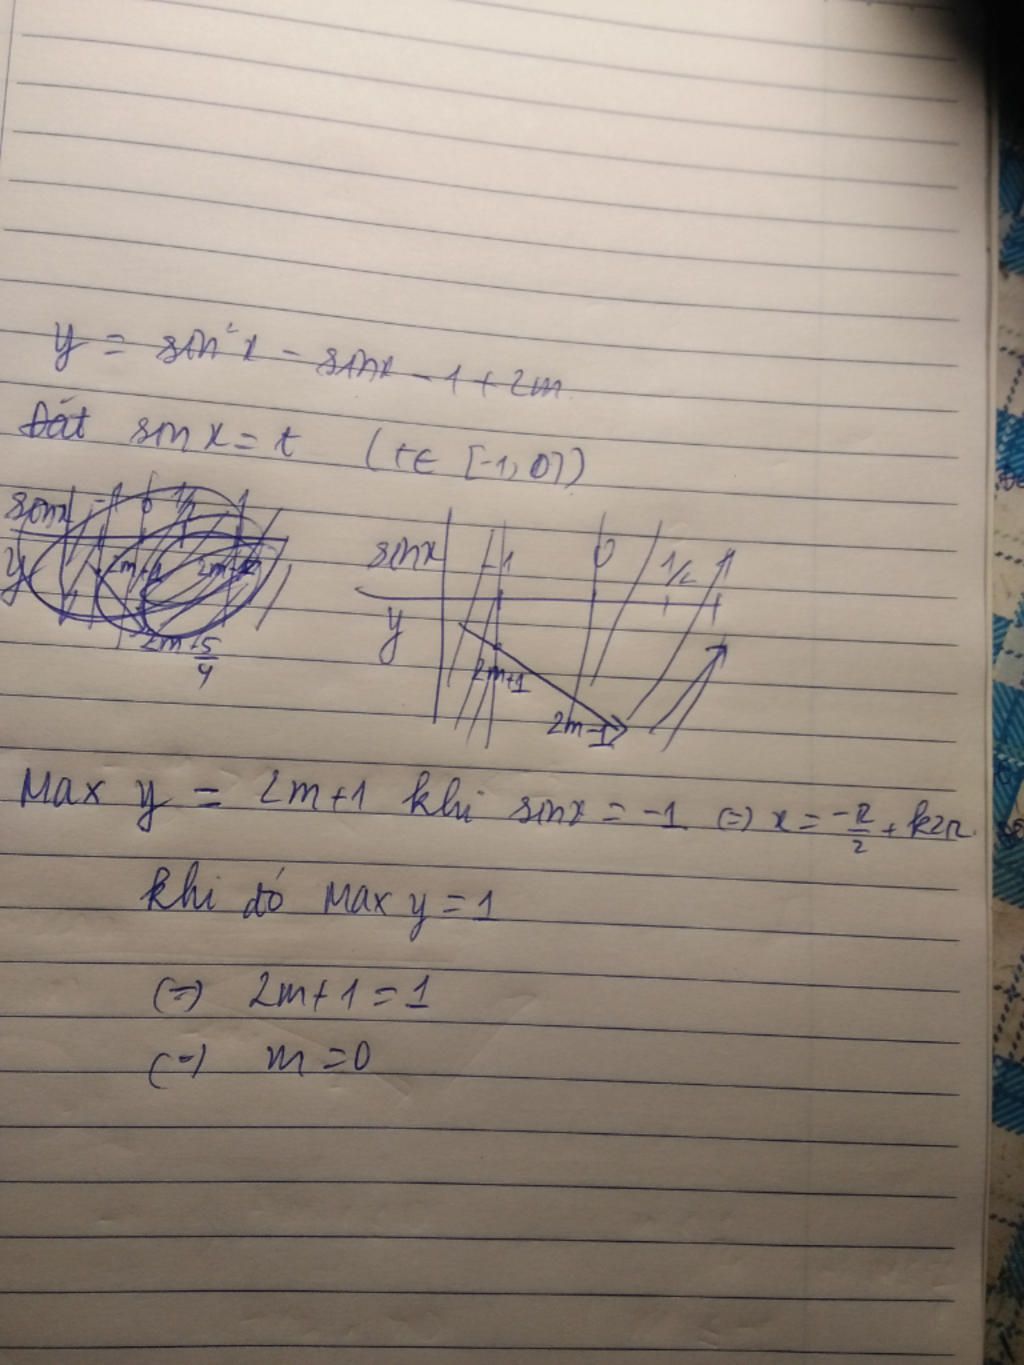 y = sin²x - sinx - 1 + 2m
Đặt sinx = t (t ∈ [-1, 0])
sinx -1 0 1/2 1
y 2m+1
2m+5/4
sinx -1 0 1/2 1
y
2m+1
2m-1
Max y = 2m+1 khi sinx = -1 (=) x = -π/2 + k2π
khi đó Max y = 1
(=) 2m+1 = 1
(=) m = 0